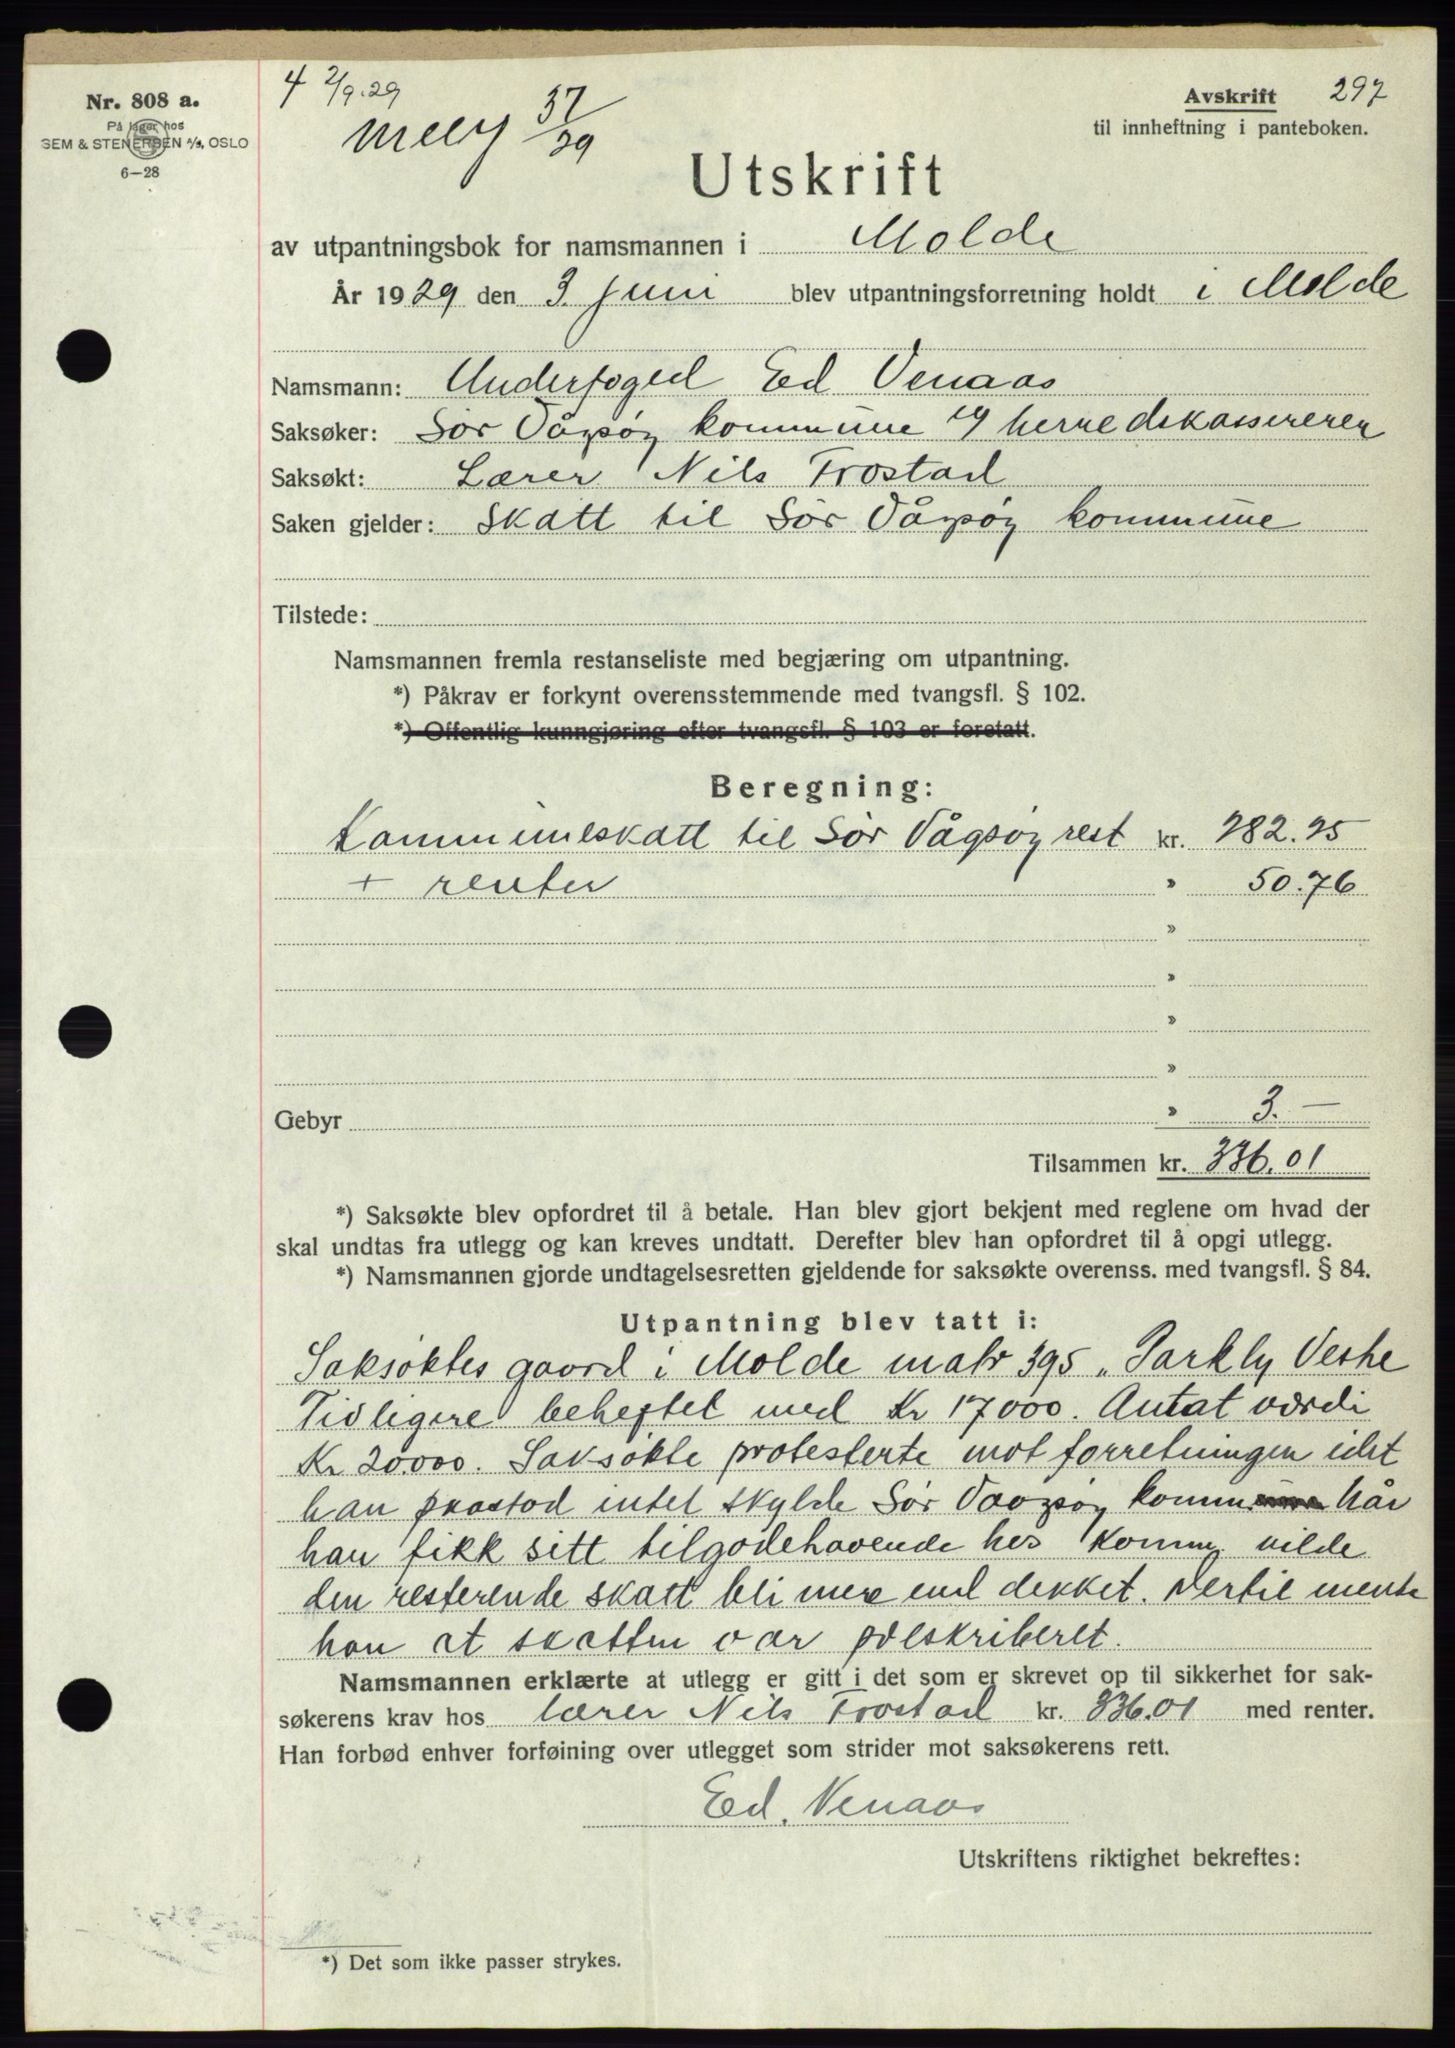 Nr. 808 a.
På lager hos
SEM & STENERSEN A/S, OSLO
6—28
4 2/9.29
37/29
Avskrift 297
til innheftning i panteboken.
Utskrift
av utpantningsbok for namsmannen i Molde
År 1929 den 3 juni blev utpantningsforretning holdt i Molde
Namsmann: Underfoged Ed Venaas
Saksøker: Sør Vågsøy kommune v/ herredskassereren
Saksøkt: Lærer Nils Frostad
Saken gjelder: Skatt til Sør Vågsøy kommune
Tilstede:
Namsmannen fremla restanseliste med begjæring om utpantning.
*) Påkrav er forkynt overensstemmende med tvangsfl. § 102.
*) Offentlig kunngjøring efter tvangsfl. § 103 er foretatt.
Beregning:
Kommuneskatt til Sør Vågsøy rest kr. 282.25
+ renter » 50.76
»
»
»
»
Gebyr » 3.—
Tilsammen kr. 336.01
*) Saksøkte blev opfordret til å betale. Han blev gjort bekjent med reglene om hvad der
skal undtas fra utlegg og kan kreves undtatt. Derefter blev han opfordret til å opgi utlegg.
*) Namsmannen gjorde undtagelsesretten gjeldende for saksøkte overenss. med tvangsfl. § 84.
Utpantning blev tatt i:
Saksøktes gaard i Molde matr 395 „Parkly Vestre
Tidligere beheftet med Kr 17000. Antat værdi
Kr 20.000. Saksøkte protesterte mot forretningen idet
han paastod intet skylde Sør Vaagsøy komm Når
han fikk sitt tilgodehavende hos komm. vilde
den resterende skatt bli mere end dekket. Dertil mente
han at skatten var preskriberet.
Namsmannen erklærte at utlegg er gitt i det som er skrevet op til sikkerhet for sak-
søkerens krav hos lærer Nils Frostad kr. 336.01 med renter.
Han forbød enhver forføining over utlegget som strider mot saksøkerens rett.
Ed. Venaas
Utskriftens riktighet bekreftes:
*) Det som ikke passer strykes.